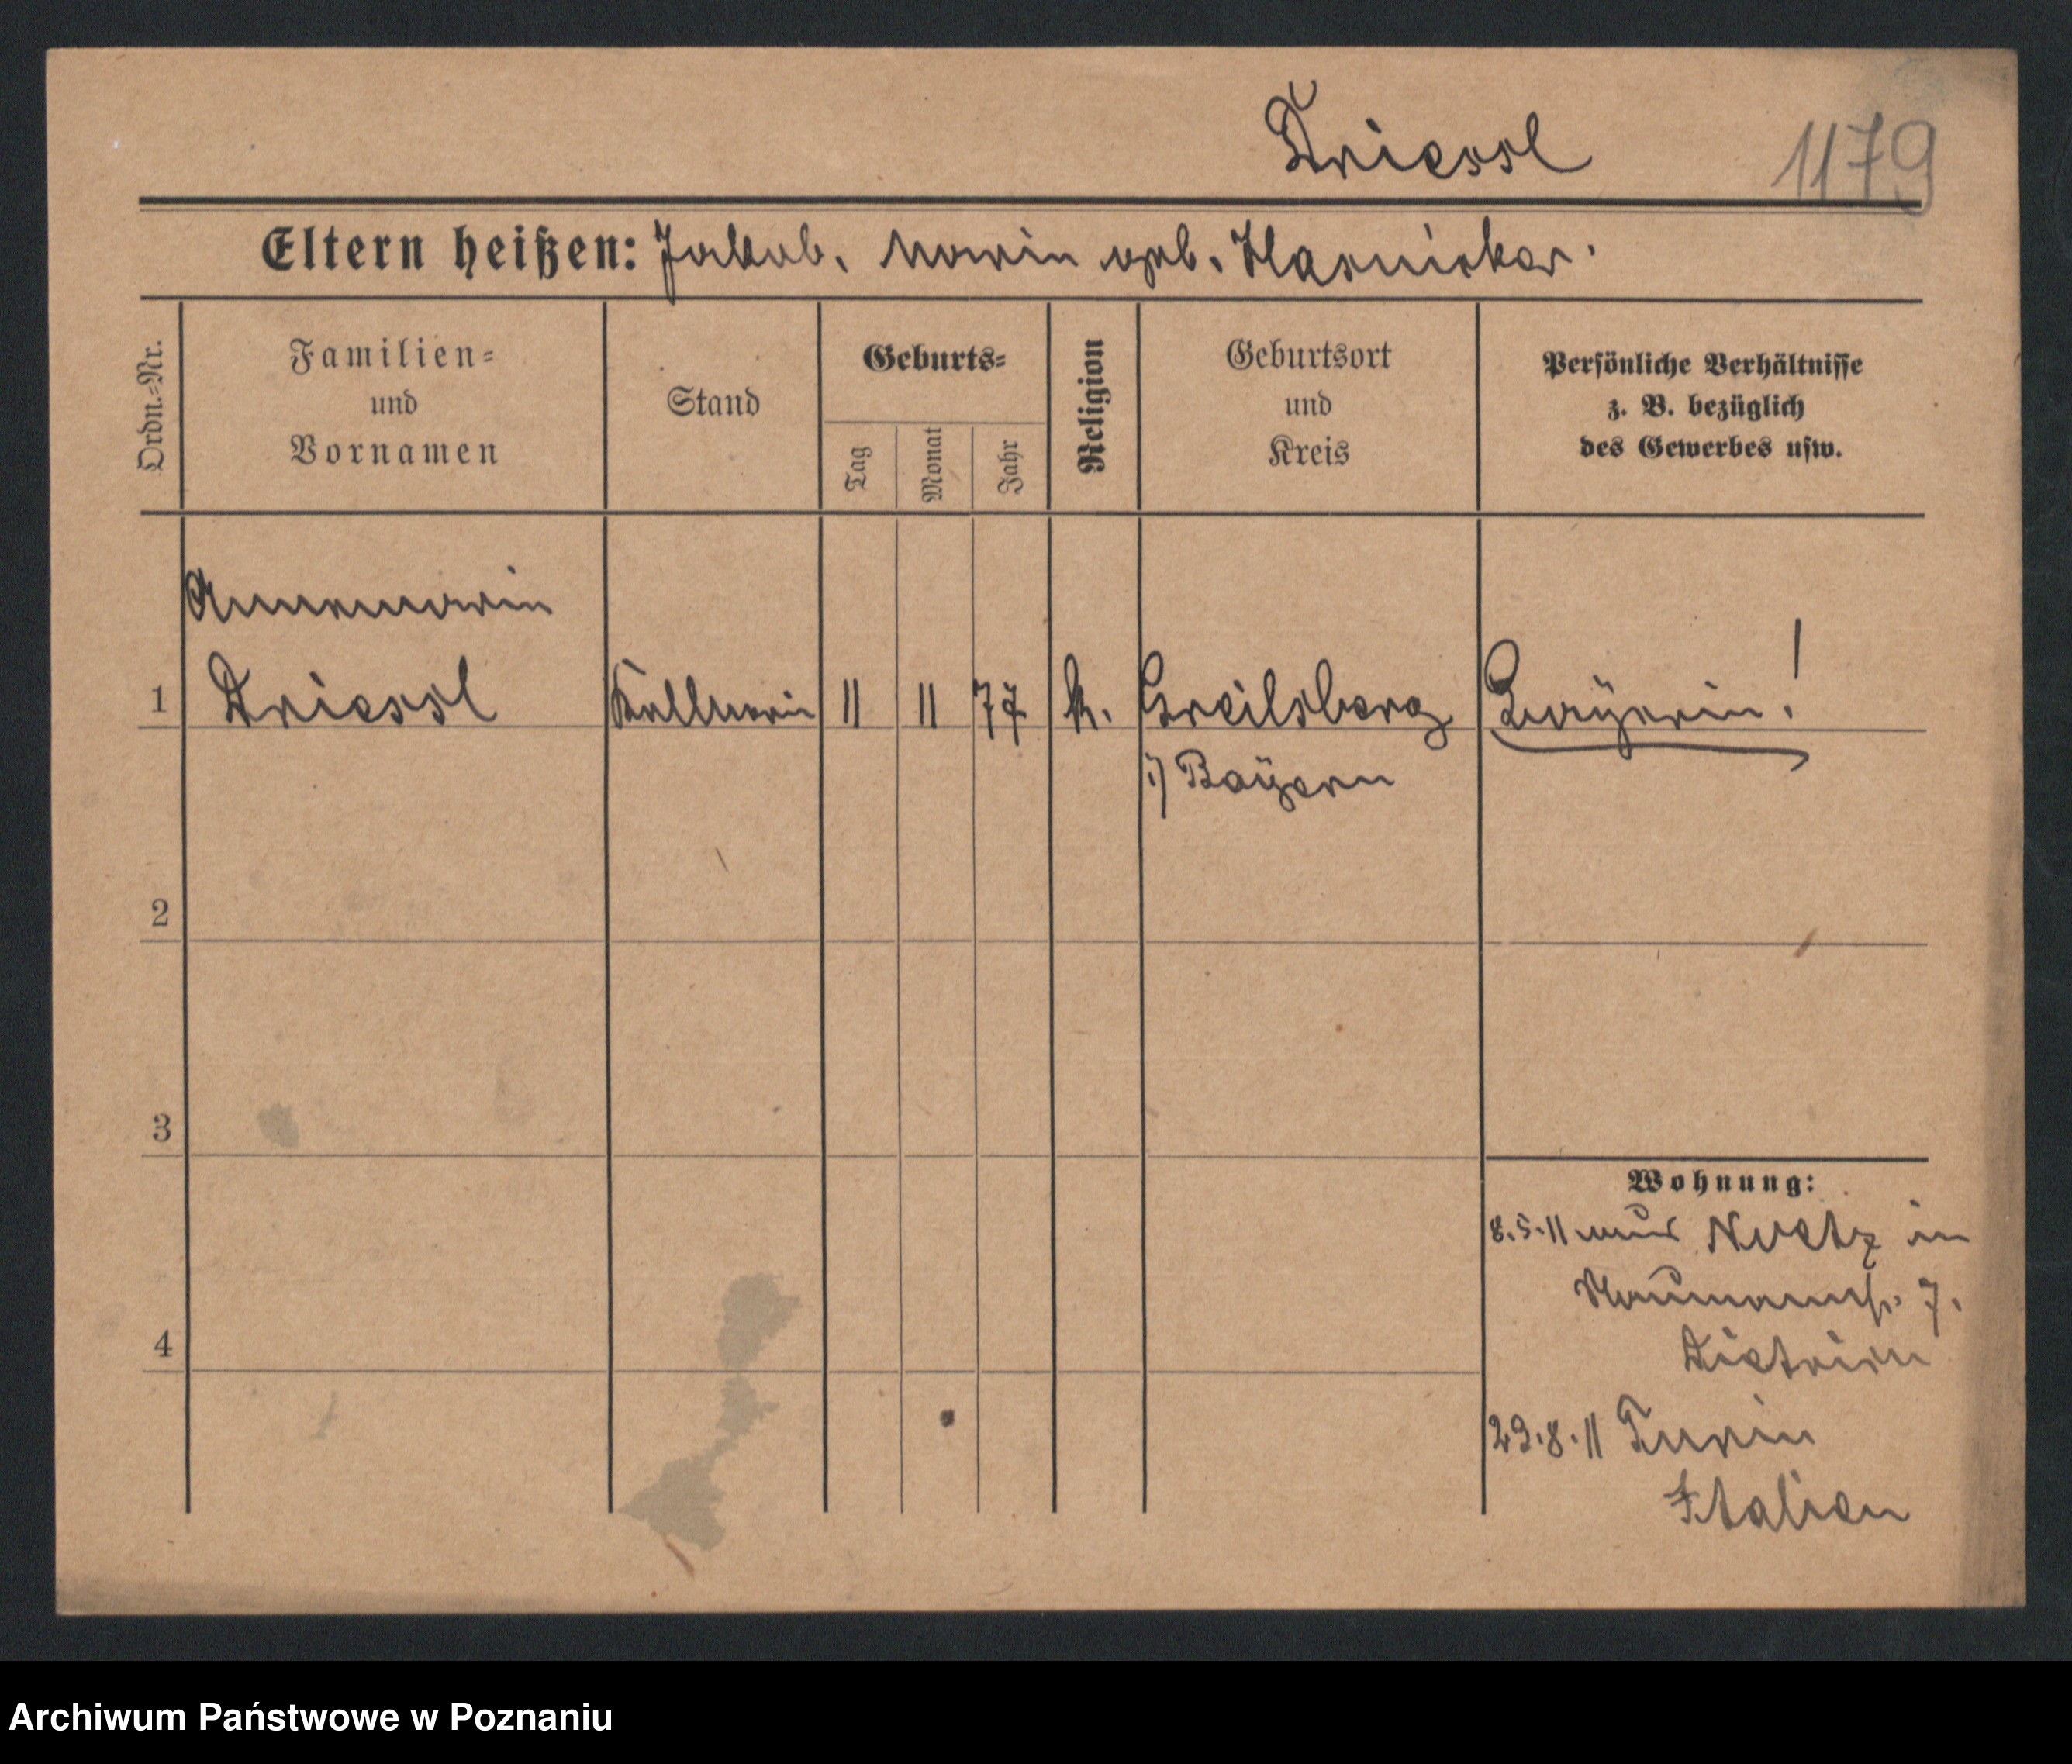 Driessl 1179
Eltern heißen: Jakob, Marie geb. Harnicker.
Ordn.-Nr.
Familien-
und
Vornamen
Stand
Geburts-
Tag
Monat
Jahr
Religion
Geburtsort
und
Kreis
Persönliche Verhältnisse
z. B. bezüglich
des Gewerbes usw.
Annemarie
1 Driessl Kellnerin 11 11 77 k. Greilsberg Bayerin!
i/ Bayern
2
3
Wohnung:
8.5.11 aus in
Naumannstr. 7.
4
Dietrich
29.8.11 Turin
Italien
Archiwum Państwowe w Poznaniu